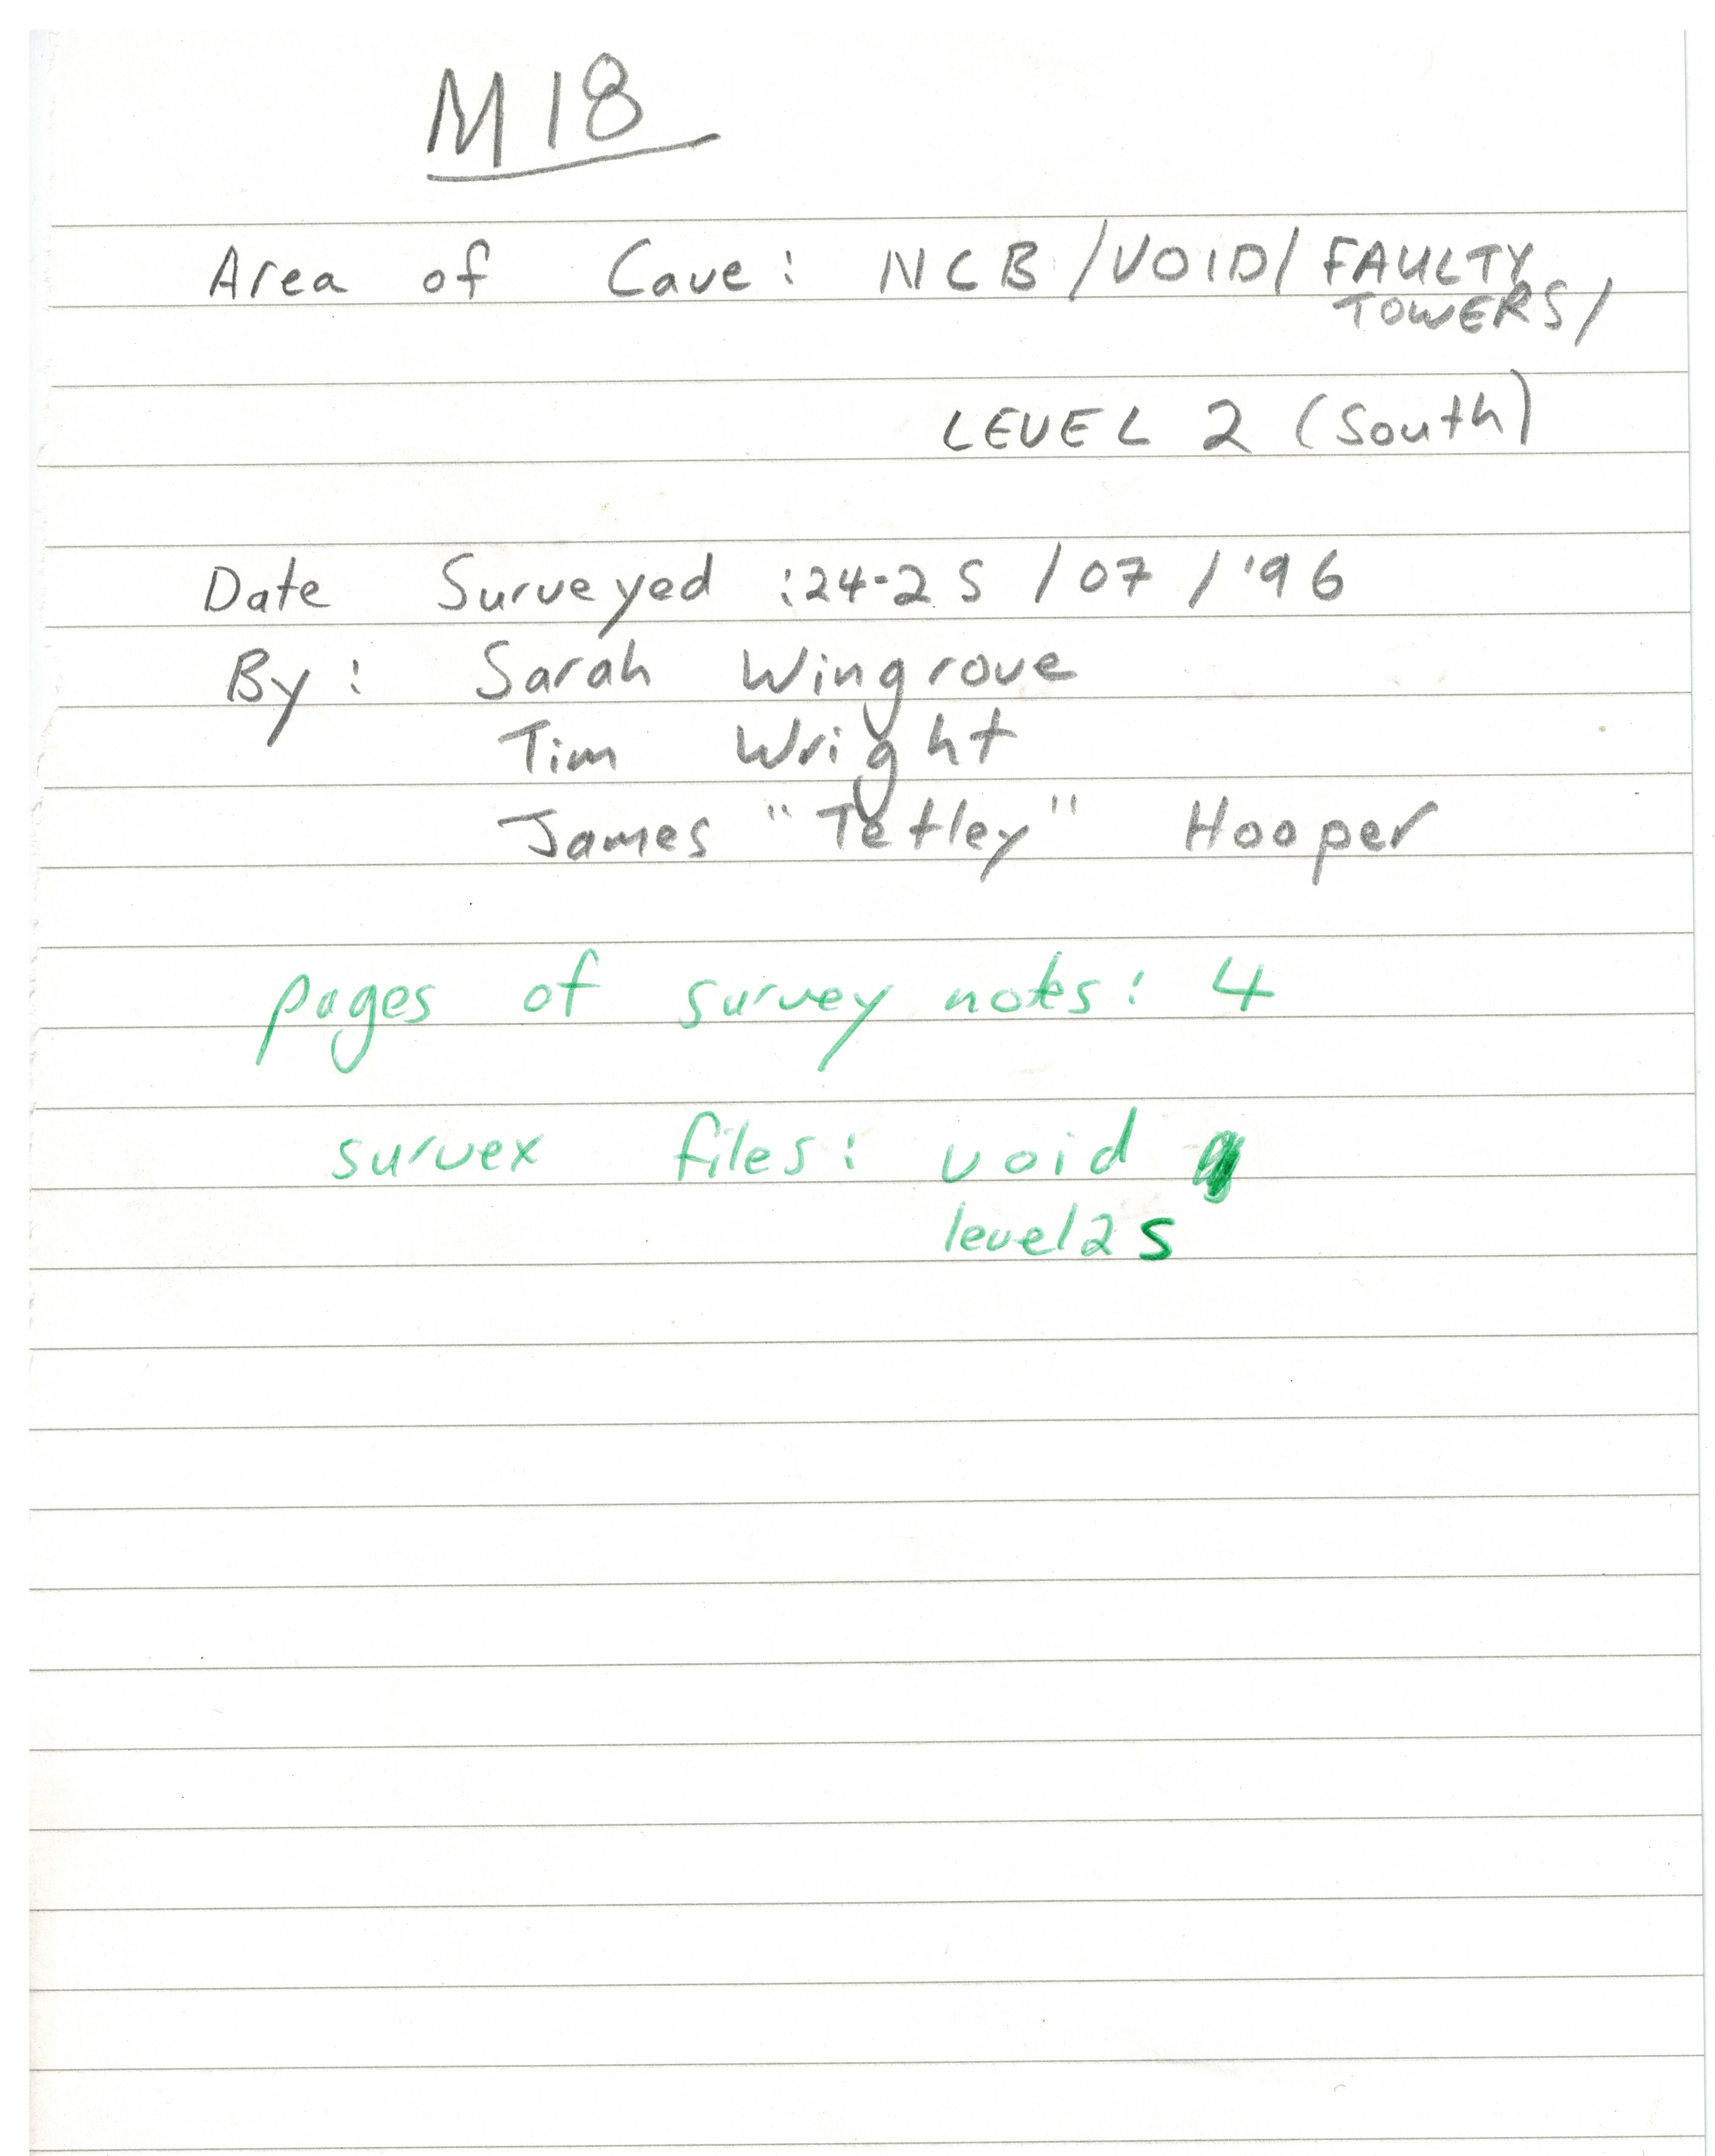 M18
Area of Cave: NCB / VOID / FAULTY
TOWERS /
LEVEL 2 (South)
Date Surveyed :24-25 / 07 / '96
By: Sarah Wingrove
Tim Wright
James "Tetley" Hooper
pages of survey notes: 4
survex files: void
level2s